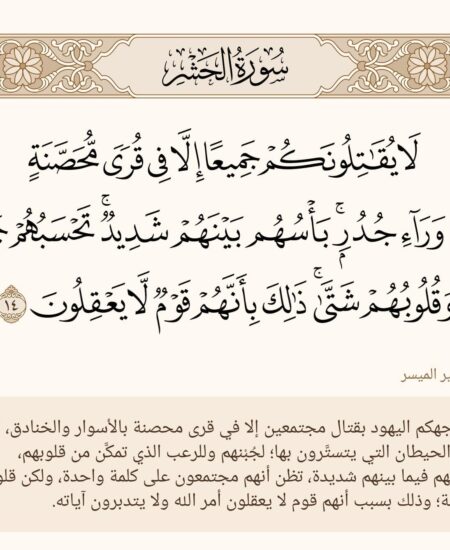 سُورَةُ الحَشْرِ
لَا يُقَٰتِلُونَكُمْ جَمِيعًا إِلَّا فِى قُرًى مُّحَصَّنَةٍ
وَرَآءِ جُدُرٍۭ ۚ بَأْسُهُم بَيْنَهُمْ شَدِيدٌ ۚ تَحْسَبُهُمْ
وَقُلُوبُهُمْ شَتَّىٰ ۚ ذَٰلِكَ بِأَنَّهُمْ قَوْمٌ لَّا يَعْقِلُونَ ١٤
الميسر
اليهود بقتال مجتمعين إلا في قرى محصنة بالأسوار والخنادق،
الحيطان التي يتستَّرون بها؛ لجُبْنهم وللرعب الذي تمكَّن من قلوبهم،
فيما بينهم شديدة، تظن أنهم مجتمعون على كلمة واحدة، ولكن
وذلك بسبب أنهم قوم لا يعقلون أمر الله ولا يتدبرون آياته.